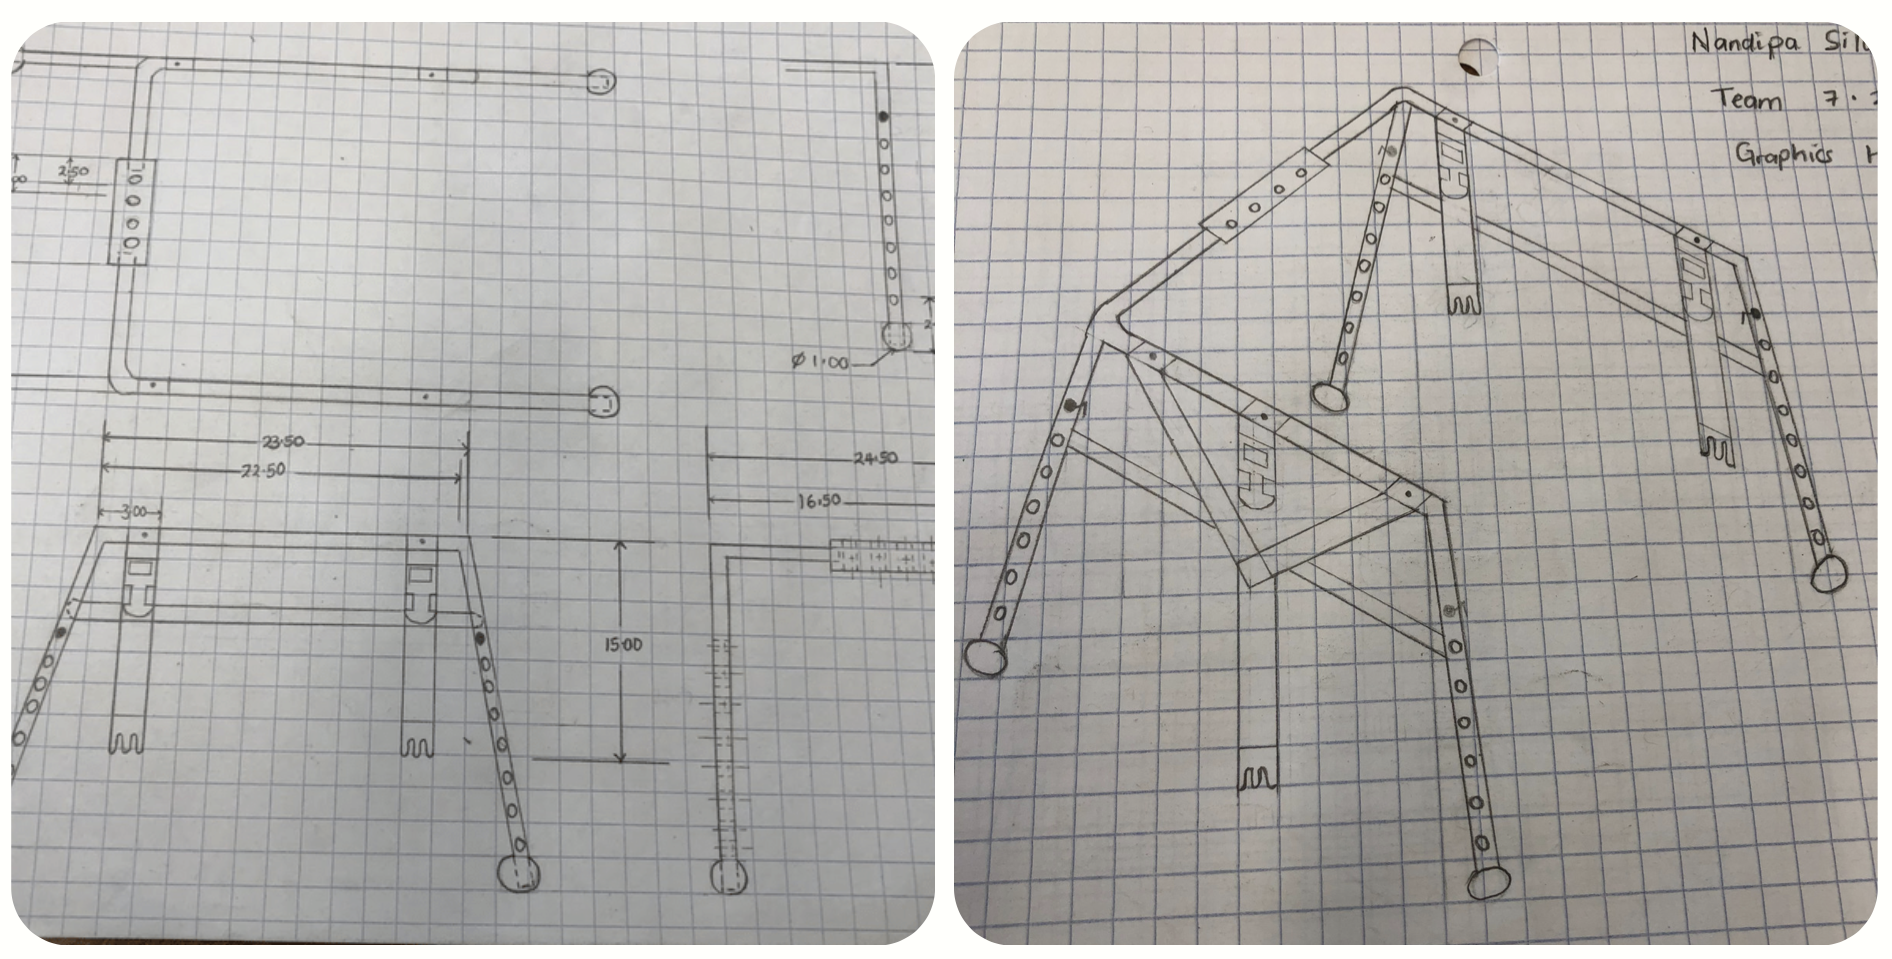 2.50
Ø 1.00
23.50
22.50
24.50
16.50
3.00
15.00
Nandipa
Team 7.
Graphics